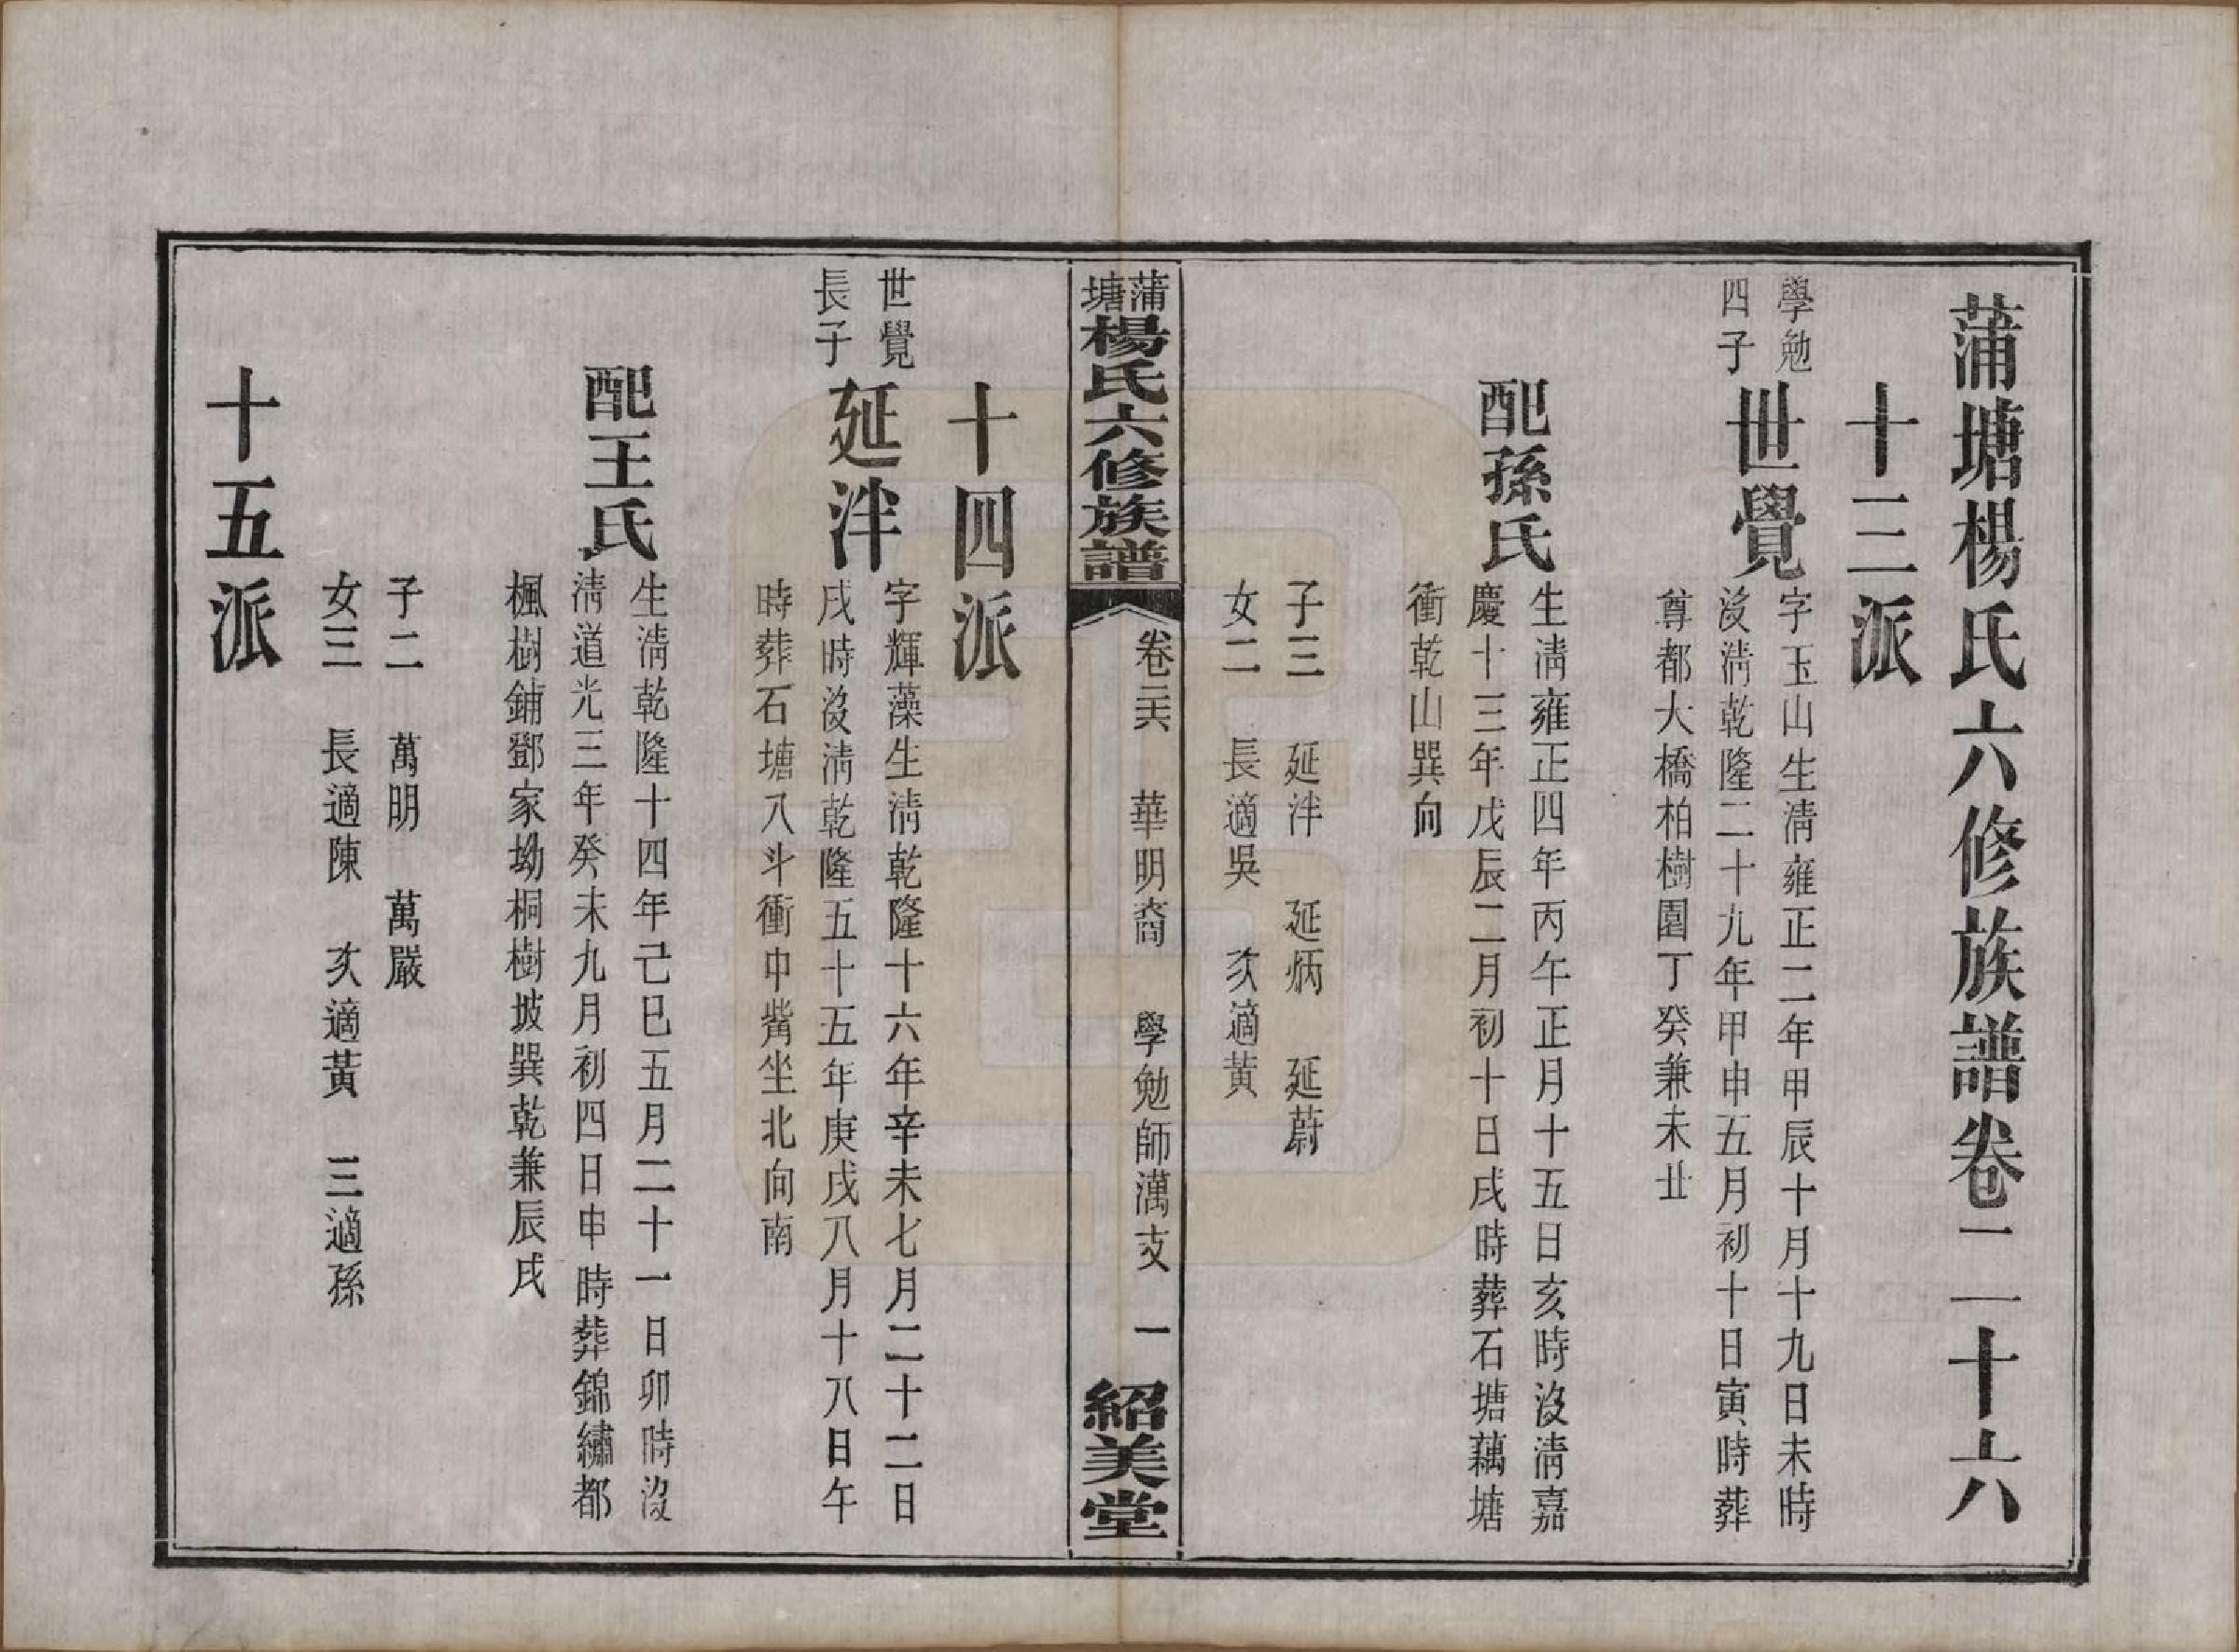 蒲塘楊氏六修族譜卷二十六
十三派
學勉
四子
世覺
字玉山生淸雍正二年甲辰十月十九日未時
沒淸乾隆二十九年甲申五月初十日寅時葬
尊都大橋柏樹園丁癸兼未丑
配孫氏
生淸雍正四年丙午正月十五日亥時沒淸嘉
慶十三年戊辰二月初十日戌時葬石塘藕塘
衝乾山巽向
子三　延泮　延炳　延蔚
女二　長適吳　次適黃
蒲塘楊氏六修族譜
卷二六　華明裔　學勉師濿支　一
紹美堂
十四派
世覺
長子
延泮
字輝藻生淸乾隆十六年辛未七月二十二日
戌時沒淸乾隆五十五年庚戌八月十八日午
時葬石塘八斗衝中觜坐北向南
配王氏
生淸乾隆十四年己巳五月二十一日卯時沒
淸道光三年癸未九月初四日申時葬錦繡都
楓樹鋪鄧家坳桐樹坡巽乾兼辰戌
子二　萬明　萬嚴
女三　長適陳　次適黃　三適孫
十五派